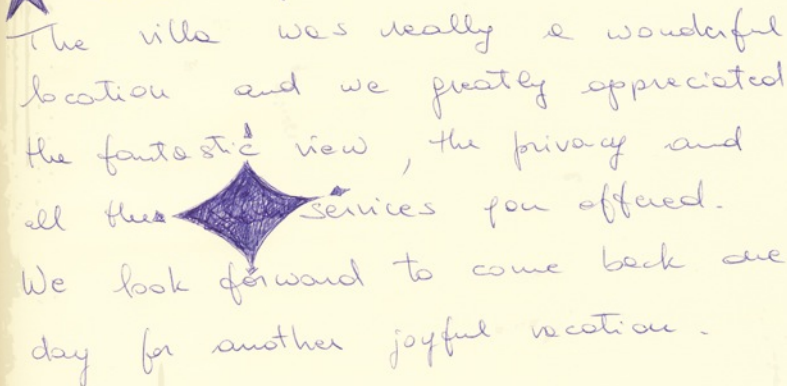 The villa was really a wonderful
location and we greatly appreciated
the fantastic view, the privacy and
all the services you offered.
We look forward to come back one
day for another joyful vacation.